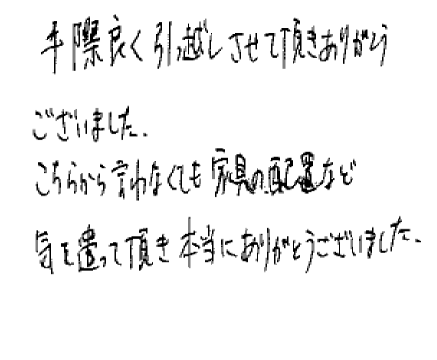 手際良く引っ越しさせて頂きありがとう
ございました.
こちらから言わなくても家具の配置など
気を遣って頂き本当にありがとうございました.